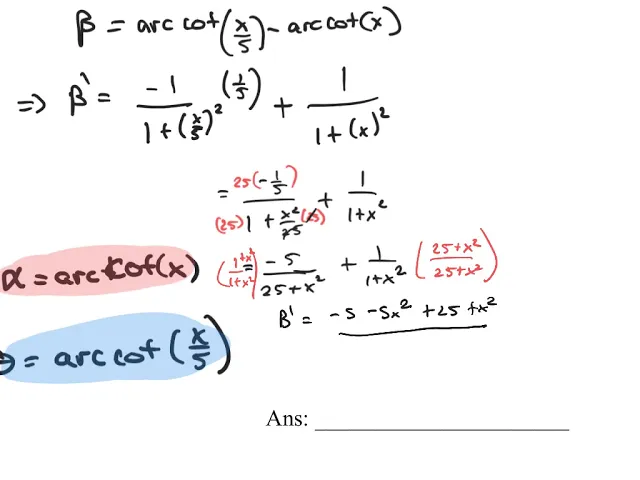 β = arc cot(x/5) - arc cot(x)
⇒ β' = -1/(1+(x/5)²) (1/5) + 1/(1+(x)²)
= 25(-1/5)/((25) 1 + x²/25 (25)) + 1/(1+x²)
α = arc cot(x)
(1+x²/1+x²) = -5/(25+x²) + 1/(1+x²) (25+x²/25+x²)
β' = -5 -5x² +25 +x²
θ = arc cot(x/5)
Ans: